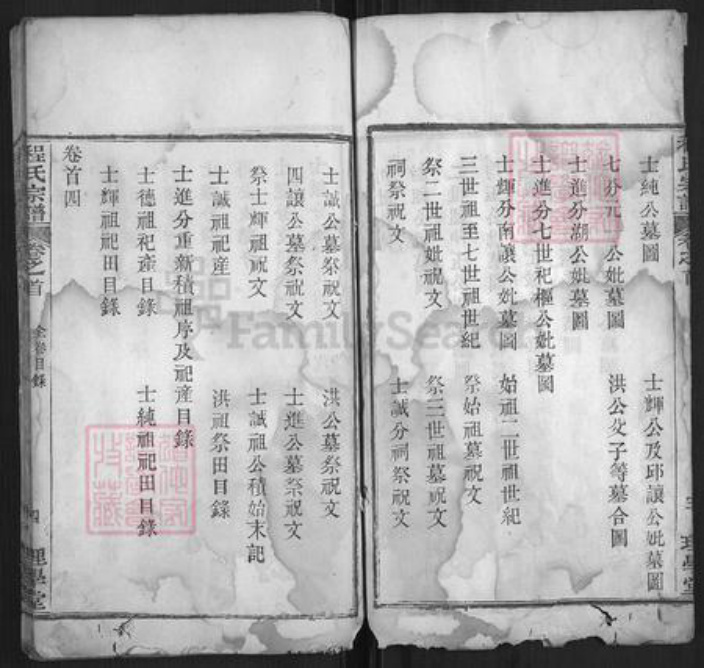 士純公墓圖　士輝公及邱讓公妣墓圖
七分元　公妣墓圖　洪公父子等墓合圖
士進分湖公妣墓圖
士進分七世祀樞公妣墓圖
士輝分南讓公妣墓圖　始祖二世祖世紀
三世祖至七世祖世紀　祭始祖墓祝文
祭二世祖妣祝文　祭三世祖墓祝文
祠祭祝文　士誠分祠祭祝文
士誠公墓祭祝文　洪公墓祭祝文
四讓公墓祭祝文　士進公墓祭祝文
祭士輝祖祝文　士誠祖公積始末記
士誠祖祀產　洪祖祭田目錄
士進分重新積祖序及祀產目錄
士德祖祀產目錄　士純祖祀田目錄
士輝祖祀田目錄
卷首四
程氏宗譜　卷之首　全卷目錄　四　理學堂
FamilySearch